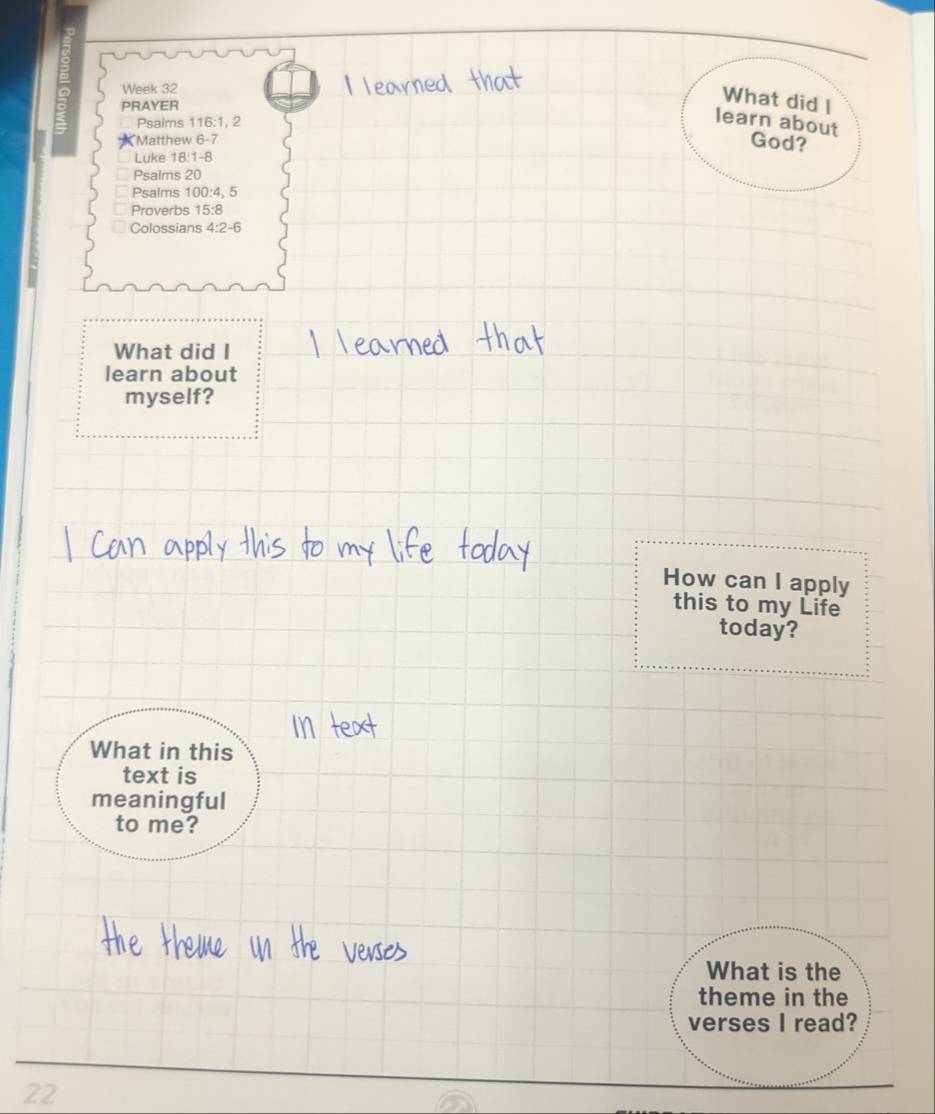 Personal Growth
Week 32
PRAYER
Psalms 116:1, 2
Matthew 6-7
Luke 18:1-8
Psalms 20
Psalms 100:4, 5
Proverbs 15:8
Colossians 4:2-6
I learned that
What did I
learn about
God?
What did I
learn about
myself?
I learned that
I can apply this to my life today
How can I apply
this to my Life
today?
What in this
text is
meaningful
to me?
In text
the theme in the verses
What is the
theme in the
verses I read?
22